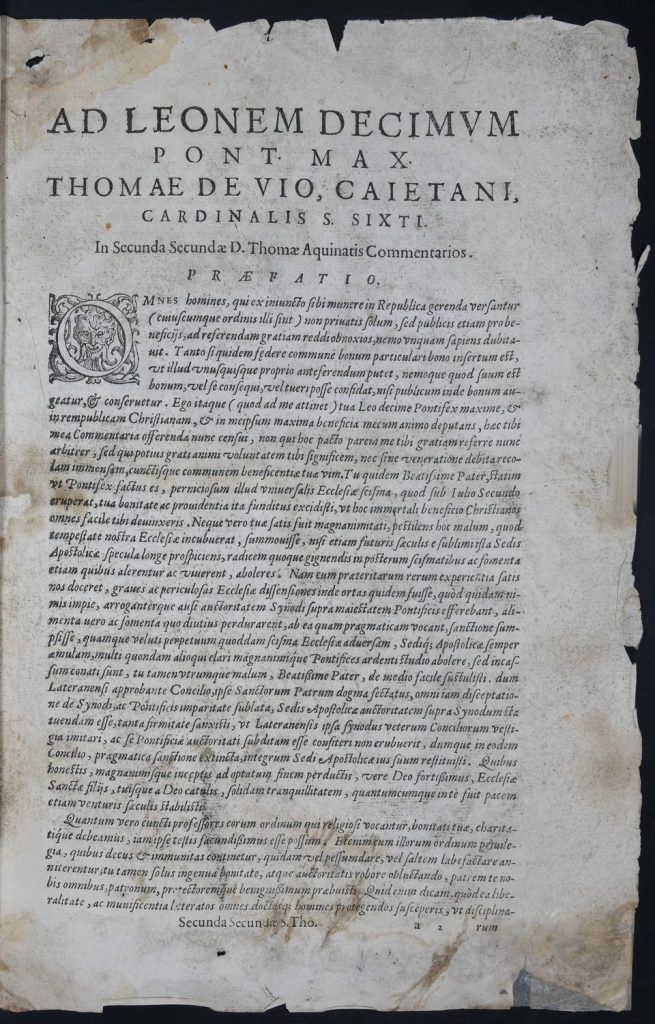 AD LEONEM DECIMVM
PONT. MAX.
THOMAE DE VIO, CAIETANI,
CARDINALIS S. SIXTI.
In Secunda Secundæ D. Thomæ Aquinatis Commentarios.
PRÆFATIO.
OMNES homines, qui ex iniuncto sibi munere in Republica gerenda versantur
(cuiuscumque ordinis illi sint) non priuatis solum, sed publicis etiam pro be-
neficijs, ad referendam gratiam reddi obnoxios, nemo vnquam sapiens dubita-
uit. Tanto siquidem fędere commune bonum particulari bono insertum est,
vt illud vnusquisque proprio anteferendum putet, nemoque quod suum est
bonum, vel se consequi, vel tueri posse confidat, nisi publicum inde bonum au-
geatur, & conseruetur. Ego itaque (quod ad me attinet) tua Leo decime Pontifex maxime, &
in rempublicam Christianam, & in meipsum maxima beneficia mecum animo deputans, hæc tibi
mea Commentaria offerenda nunc censui, non qui hoc pacto parem me tibi gratiam referre nunc
arbitrer, sed qui potius grati animi voluntatem tibi significem, nec sine veneratione debita reco-
lam immensam, cunctisque communem beneficentiæ tuæ vim. Tu quidem Beatißime Pater, statim
vt Pontifex factus es, perniciosum illud vniuersalis Ecclesiæ scisma, quod sub Iulio Secundo
eruperat, tua bonitate ac prouidentia ita funditus excidisti, vt hoc immortali beneficio Christianos
omnes facile tibi deuinxeris. Neque vero tuæ satis fuit magnanimitati, pestilens hoc malum, quod
tempestate nostra Ecclesiæ incubuerat, summouisse, nisi etiam futuris sæculis e sublimi ista Sedis
Apostolicæ specula longe prospiciens, radicem quoque gignendis in posterum scismatibus ac fomenta
etiam quibus alerentur ac viuerent, aboleres. Nam cum præteritarum rerum experientia satis
nos doceret, graues ac periculosas Ecclesiæ dissensiones inde ortas quidem fuisse, quòd quidam ni-
mis impie, arroganterque ausi auctoritatem Synodi supra maiestatem Pontificis efferebant, ali-
menta vero ac fomenta quo diutius perdurarent, ab ea quam pragmaticam vocant, sanctione sum-
psisse, quamque veluti perpetuum quoddam scisma Ecclesiæ aduersam, Sediq; Apostolicæ semper
æmulam, multi quondam alioqui clari magnanimique Pontifices ardenti studio abolere, sed incas-
sum conati sunt, tu tamen vtrumque malum, Beatißime Pater, de medio facile sustulisti. dum
Lateranensi approbante Concilio, ipse Sanctorum Patrum dogma sectatus, omni iam disceptatio-
ne de Synodi, ac Pontificis imparitate sublata, Sedis Apostolicæ auctoritatem supra Synodum sta
tuendam esse, tanta firmitate sanxisti, vt Lateranensis ipsa synodus veterum Conciliorum vesti-
gia imitari, ac se Pontificiæ auctoritati subditam esse confiteri non erubuerit, dumque in eodem
Concilio, pragmatica sanctione extincta, integrum Sedi Apostolicæ ius suum restituisti. Quibus
honestis, magnanimisque inceptis ad optatum finem perductis, vere Deo fortißimus, Ecclesiæ
Sanctæ filijs, tuisque a Deo catulis, solidam tranquillitatem, quantumcumque in te fuit pacem
etiam venturis sæculis stabilisti.
Quantum vero cuncti professores eorum ordinum qui religiosi vocantur, bonitati tuæ, charita-
tique debeamus, iam ipse testis facundißimus esse possum. Etenim cum illorum ordinum priuile-
gia, quibus decus & immunitas continetur, quidam vel pessumdare, vel saltem labefactare an-
niterentur, tu tamen solus ingenua bonitate, atque auctoritatis robore obluctando, patrem te no-
bis omnibus, patronum, protectoremque benignißimum præbuisti. Quid enim dicam, quòd ea libe-
ralitate, ac munificentia literatos omnes doctosq; homines protegendos susceperis, vt disciplina-
Secunda Secundæ S. Tho. a 2 rum